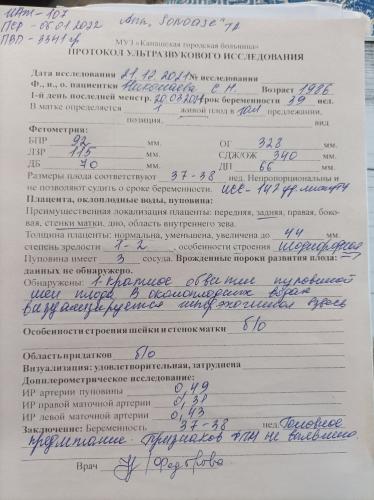 ИАЖ - 107
ПСР - 06.01.2022
ПВП - 3341 гр
МУЗ «Канашская городская больница»
ПРОТОКОЛ УЛЬТРАЗВУКОВОГО ИССЛЕДОВАНИЯ
Дата исследования 21.12.2021 № исследования
Ф., и., о. пациентки Николаева С.Н. Возраст 1986
1-й день последней менстр. 20.03.2021 Срок беременности 39 нед.
В матке определяется 1 живой плод в гол предлежании,
позиция, вид
Фетометрия:
БПР 92 мм. ОГ 328 мм.
ЛЗР 115 мм. СДЖ/ОЖ 340 мм.
ДБ 70 мм. ДП 66 мм.
Размеры плода соответствуют 37-38 нед. Непропорциональны и
не позволяют судить о сроке беременности. ЧСС - 142 уд. минуту
Плацента, околоплодные воды, пуповина:
Преимущественная локализация плаценты: передняя, задняя, правая, боко-
вая, стенки матки, дно, область внутреннего зева.
Толщина плаценты: нормальна, уменьшена, увеличена до 44 мм.
степень зрелости 1-2, особенности строения однородная
Пуповина имеет 3 сосуда. Врожденные пороки развития плода:
данных не обнаружено.
Обнаружены: 1-кратное обвитие пуповиной
шеи плода. В околоплодных водах
визуализируется гиперэхогенная взвесь
Особенности строения шейки и стенок матки б/о
Область придатков б/о
Визуализация: удовлетворительная, затруднена
Допплерометрическое исследование:
ИР артерии пуповины 0,49
ИР правой маточной артерии 0,38
ИР левой маточной артерии 0,43
Заключение: Беременность 37-38 нед. Головное
предлежание. Признаков ФПН не выявлено.
Врач Федорова